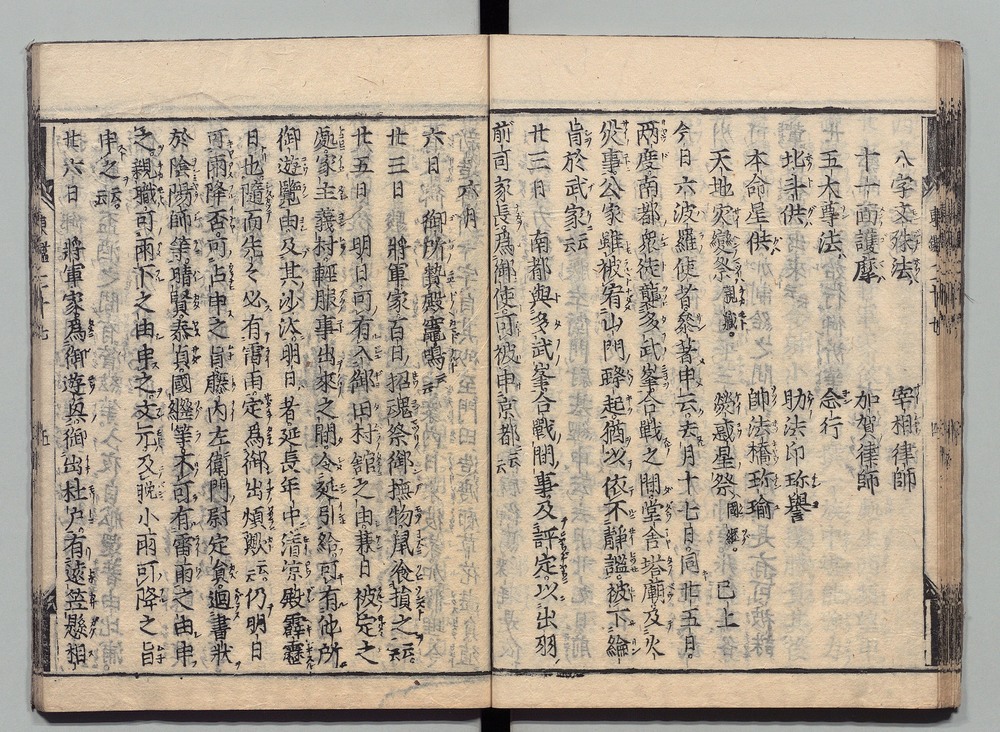 八字文殊法　宰相律師
十一面護摩　加賀律師
五大尊法　念行
北斗供　助法印珎譽
本命星供　帥法橋珎瑜
天地灾變祭親職。　熒惑星祭國継。　已上
今日六波羅使者參著申云去月十七日。同廿五日。
两度南都衆徒襲多武峯合戰之間堂舎塔廟及火
災事公家雖被宥山門蜂起猶以依不靜謐被下綸
旨於武家云云
廿三日　南都與多武峯合戰間事及評定以出羽
前司家長爲御使可被申京都云云
六月
六日　御所贄殿竈鳴云云
廿三日　將軍家百日招魂祭御撫物鼠食損之云云
廿五日　明日可有入御田村館之由兼日被定之
處家主義村輕服事出來之間令延引給可有他所
御遊覽由及其沙汰明日者延長年中清凉殿霹靂
日也隨而先々必有雷雨定爲御出煩歟云云仍明日
可雨降否可占申之旨藤内左衛門尉定員廻書狀
於陰陽師等晴賢泰貞國継等不可有雷雨之由申
之親職可雨下之由申之文元及晩小雨可降之旨
申之云云
廿六日　將軍家爲御遊興御出杜戸有遠笠懸相
東鑑二十七　五